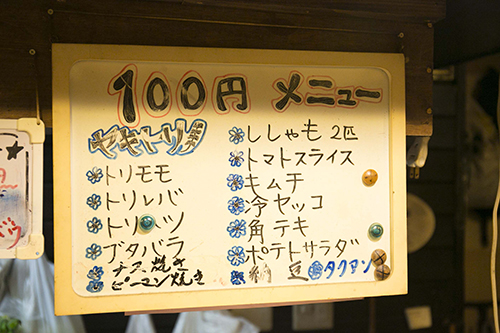 100円 メニュー
ヤキトリ
トリモモ
トリレバ
トリハツ
ブタバラ
ナス焼き
ピーマン焼き
ししゃも 2匹
トマトスライス
キムチ
冷ヤッコ
角テキ
ポテトサラダ
納豆 タクアン